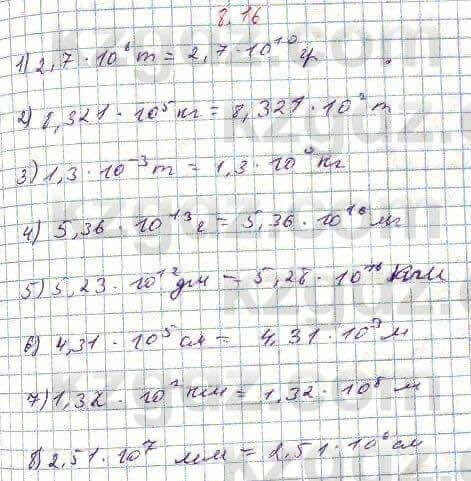 8.16
1) 2,7 · 10⁶ т = 2,7 · 10¹⁰ г
2) 8,321 · 10⁵ кг = 8,321 · 10² т
3) 1,3 · 10⁻³ т = 1,3 · 10⁰ кг
4) 5,36 · 10¹³ г = 5,36 · 10¹⁶ мг
5) 5,23 · 10¹² дм =
6) 4,31 · 10⁵ см = 4,31 · 10³ м
7) 1,32 · 10² км = 1,32 · 10⁵ м
8) 2,51 · 10⁷ мм = 2,51 · 10⁶ см
kzgdz.com